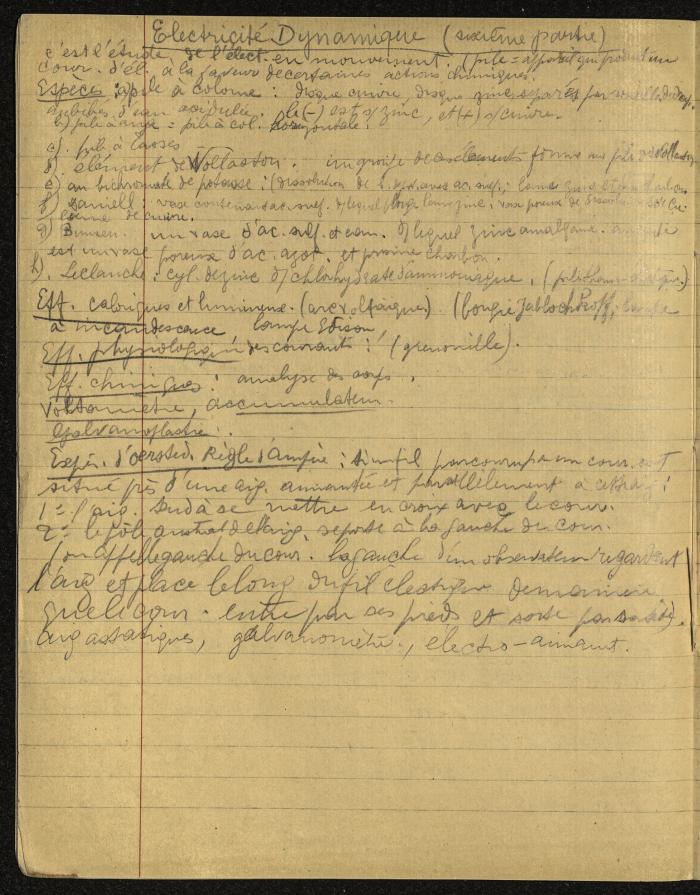 Electricité Dynamique (sixième partie)
c'est l'étude de l'élect. en mouvement. (pile = appareil qui produit un
cour. d'él. à la faveur de certaines actions chimiques.
Espèces: a) pile à colonne : disque cuivre disque zinc séparés par
imbibés d'eau acidulée le (-) est s/ zinc, et (+) s/ cuivre.
b) pile à auge = pile à col. horizontale.
c). pile à tasses
d) élément de Wollaston. un groupe de éléments forme une pile de Wollaston
e) au bichromate de potasse : (dissolution de
f) Daniell : vase contenant ac. sulf. ds lequel plonge lame zinc ; vase poreux de
lame de cuivre.
g) Bunsen. un vase d'ac. sulf. et eau. ds lequel zinc amalgamé.
est un vase poreux d'ac. azot. et prisme charbon.
h). Leclanché : cyl. de zinc ds chlorhydrate d'ammoniaque,
Eff. calorifiques et lumineux. (arc voltaïque.) (bougie Jablochkoff, lampe
à incandescence lampe Edison,
Eff. physiologiq. des courants : (grenouille).
Eff. chimiques : analyse des corps.
Voltamètre, accumulateur.
Galvanoplastie.
Expér. d'oersted. Règle d'ampère : si un fil parcouru par un cour. est
situé près d'une aig. aimantée et parallèlement à cette aig :
1º l'aig. tend à se mettre en croix avec le cour.
2º le pôle austral de l'aig. se porte à la gauche du cour.
(on appelle gauche du cour. la gauche d'un observateur regardant
l'aig et placé le long du fil électrique de manière
que le cour. entre par ses pieds et sorte par sa tête).
aig astatiques, galvanomètre, electro-aimant.